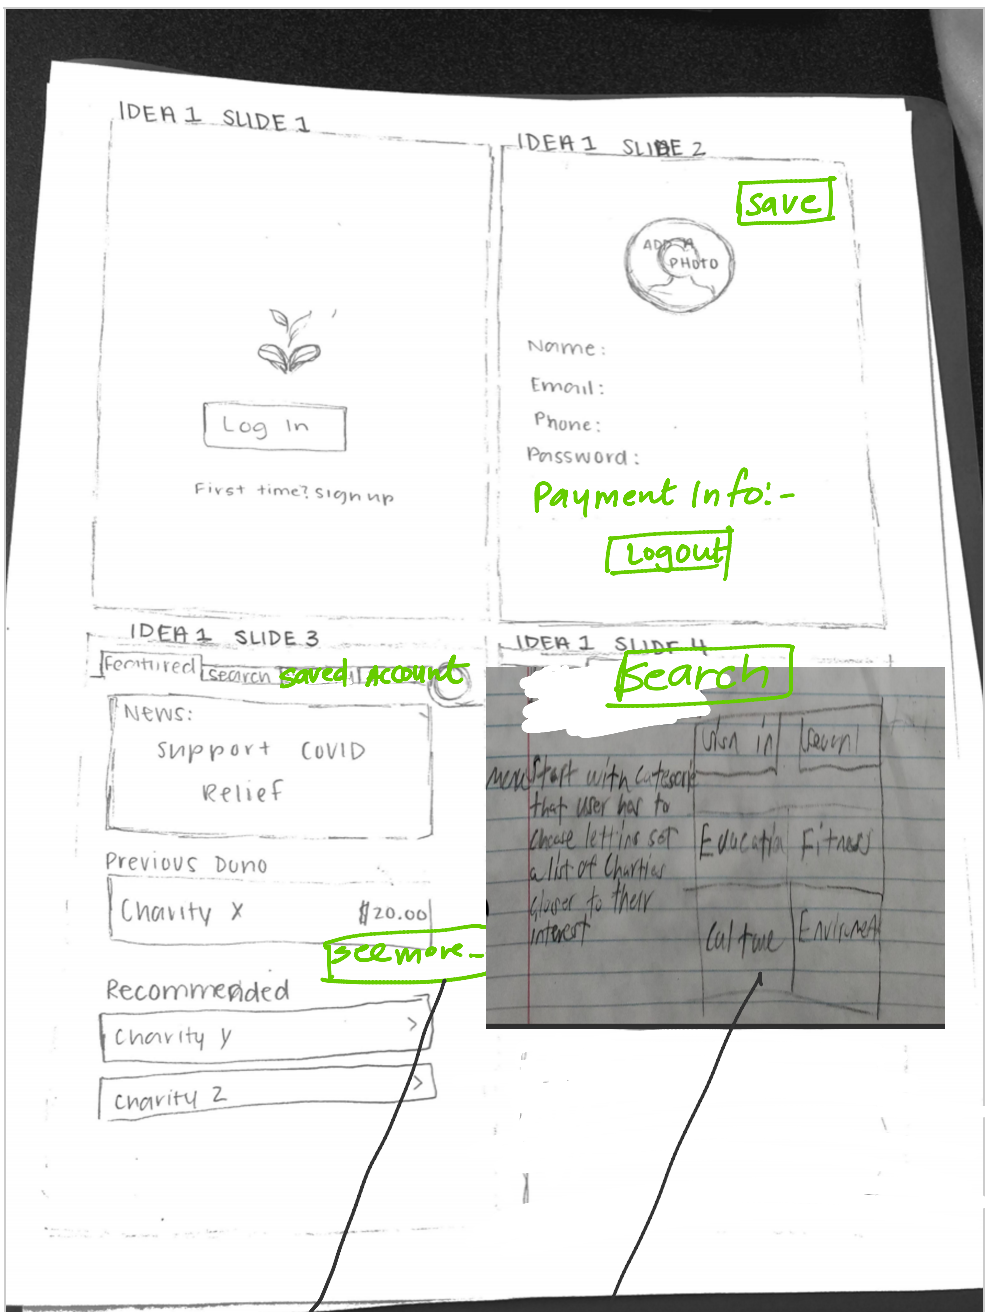 IDEA 1 SLIDE 1
Log In
First time? Sign up
IDEA 1 SLIDE 2
Save
ADD A
PHOTO
Name:
Email:
Phone:
Password:
Payment Info:-
Logout
IDEA 1 SLIDE 3
Featured Search Saved Account
News:
Support COVID
Relief
Previous Dono
Charity X $20.00
See more -
Recommended
Charity Y >
Charity Z >
IDEA 1 SLIDE 4
Search
Sign in
menu Start with
that user has to
a list of
closer to their
interest
Fitness